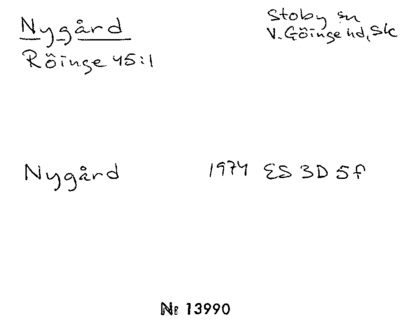 Nygård
Stoby sn
Röinge 45:1
V. Göinge hd, Sk
Nygård 1974 ES 3D 5f
No 13990